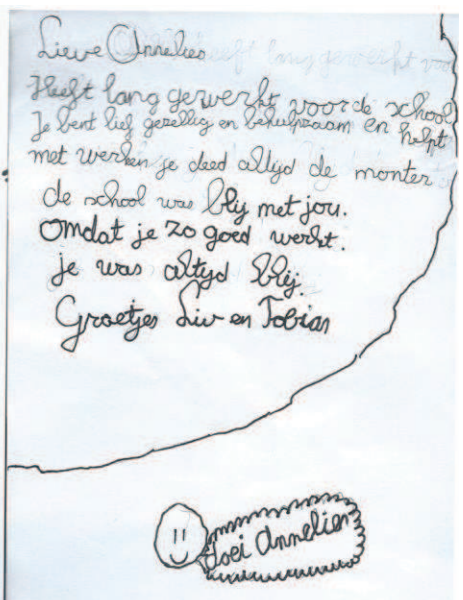 Lieve Annelies
Heeft lang gewerkt voor de school
Je bent lief gezellig en behulpzaam en helpt
met werken je deed altyd de monter
de school was bly met jou.
Omdat je zo goed werkt.
je was altyd blij.
Groetjes Liv en Tobias
doei Annelies